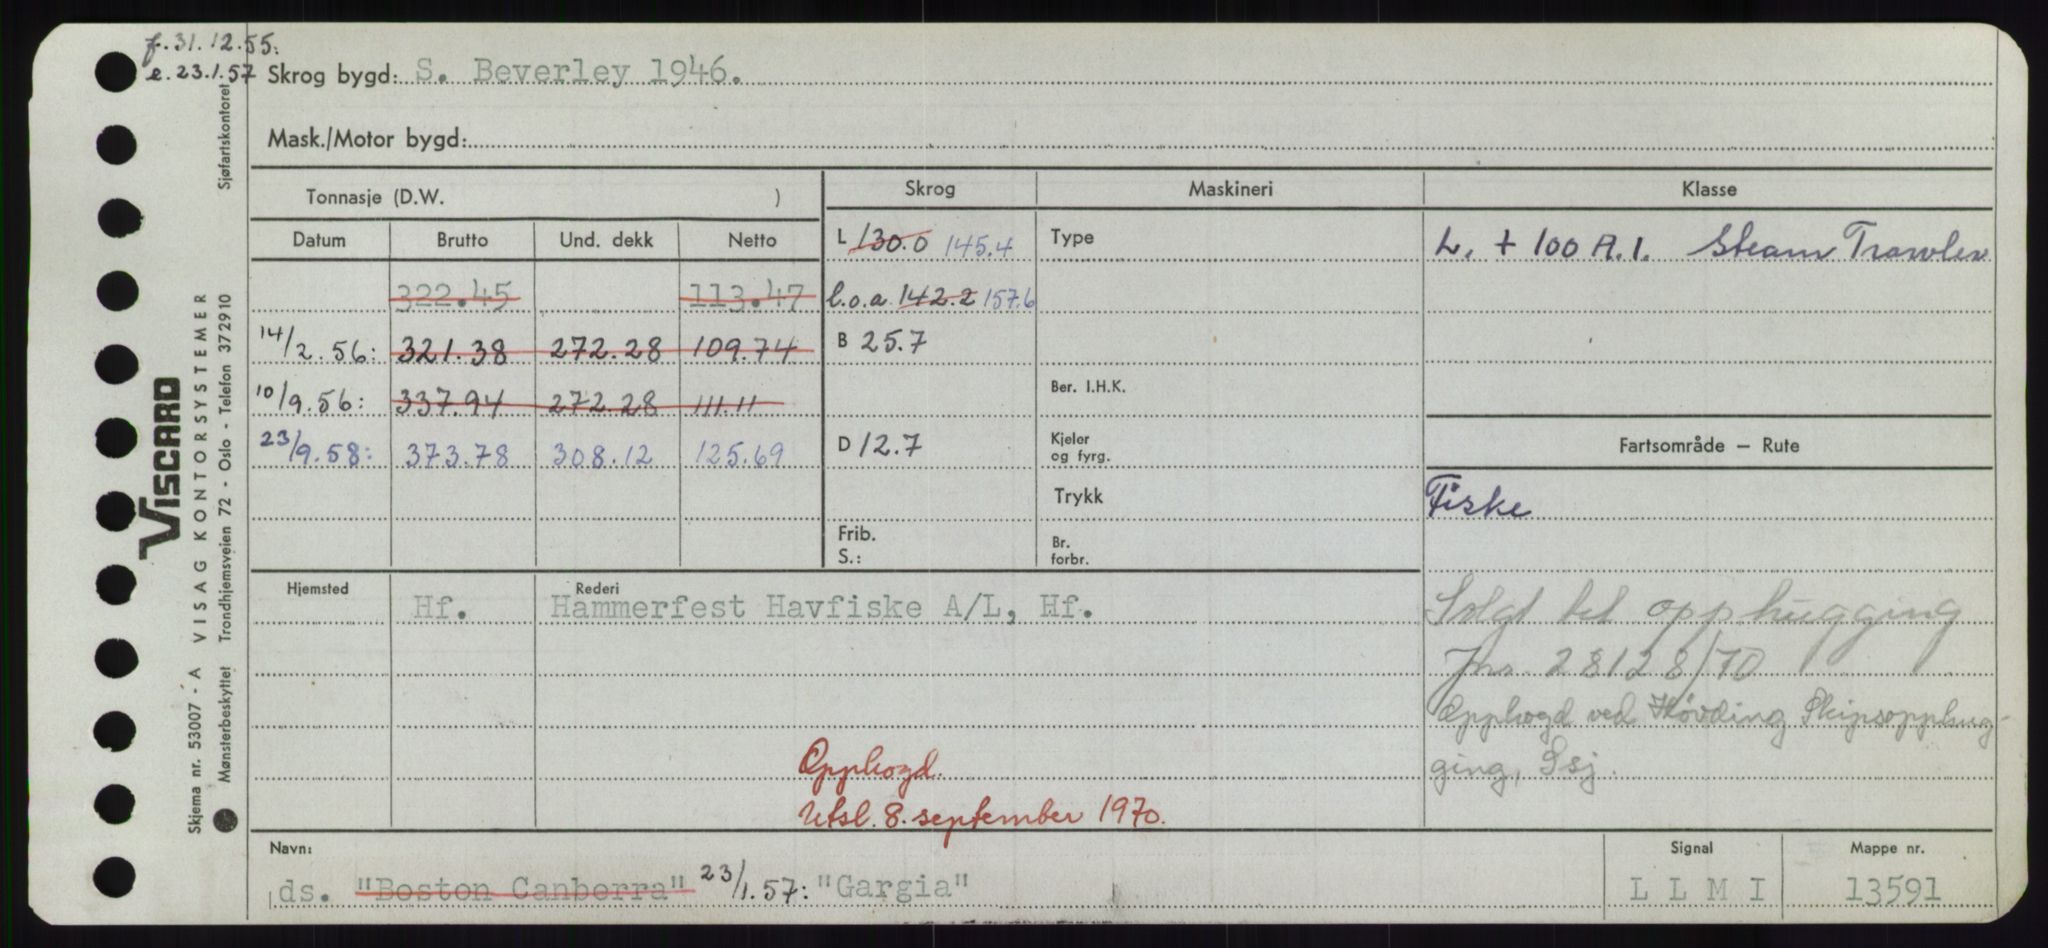 f. 31.12.55.
e. 23.1.57
Skrog bygd: S. Beverley 1946.
Mask./Motor bygd:
Tonnasje (D.W. )
Skrog
Maskineri
Klasse
Datum
Brutto
Und. dekk
Netto
L 130.0 145.4
Type
L. + 100 A.1. Steam Trawler
322.45
113.47
l.o.a. 142.2 157.6
14/2.56: 321.38 272.28 109.74
B 25.7
10/9.56: 337.94 272.28 111.11
Ber. I.H.K.
23/9.58: 373.78 308.12 125.69
D 12.7
Kjeler
og fyrg.
Fartsområde — Rute
Trykk
Fiske
Frib.
S.:
Br.
forbr.
Hjemsted
Hf.
Rederi
Hammerfest Havfiske A/L, Hf.
Solgt til opphugging
Jnr. 28128/70
Opphogd ved Høvding Skipsopphug-
ging, Ssj.
Opphogd.
Utsl. 8. september 1970.
Navn:
ds. "Boston Canberra" 23/1.57: "Gargia"
Signal
L L M I
Mappe nr.
13591
VISCARD
Skjema nr. 53007 - A VISAG KONTORSYSTEMER
Mønsterbeskyttet Trondhjemsveien 72 - Oslo - Telefon 372910 Sjøfartskontoret